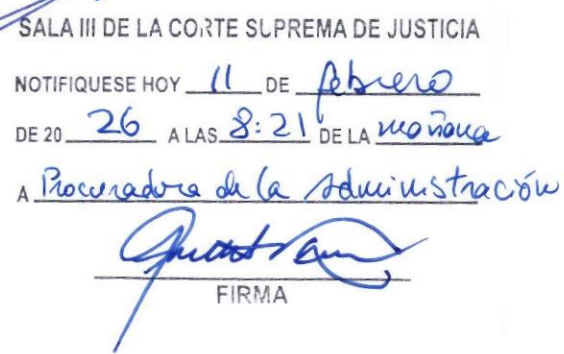 SALA III DE LA CORTE SUPREMA DE JUSTICIA
NOTIFIQUESE HOY 11 DE febrero
DE 20 26 A LAS 8:21 DE LA mañana
A Procuradora de la Administración
FIRMA